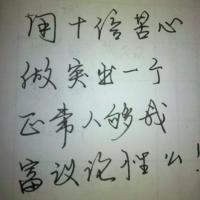 用十倍苦心
做突出一个
正常人够我
富议论性么!